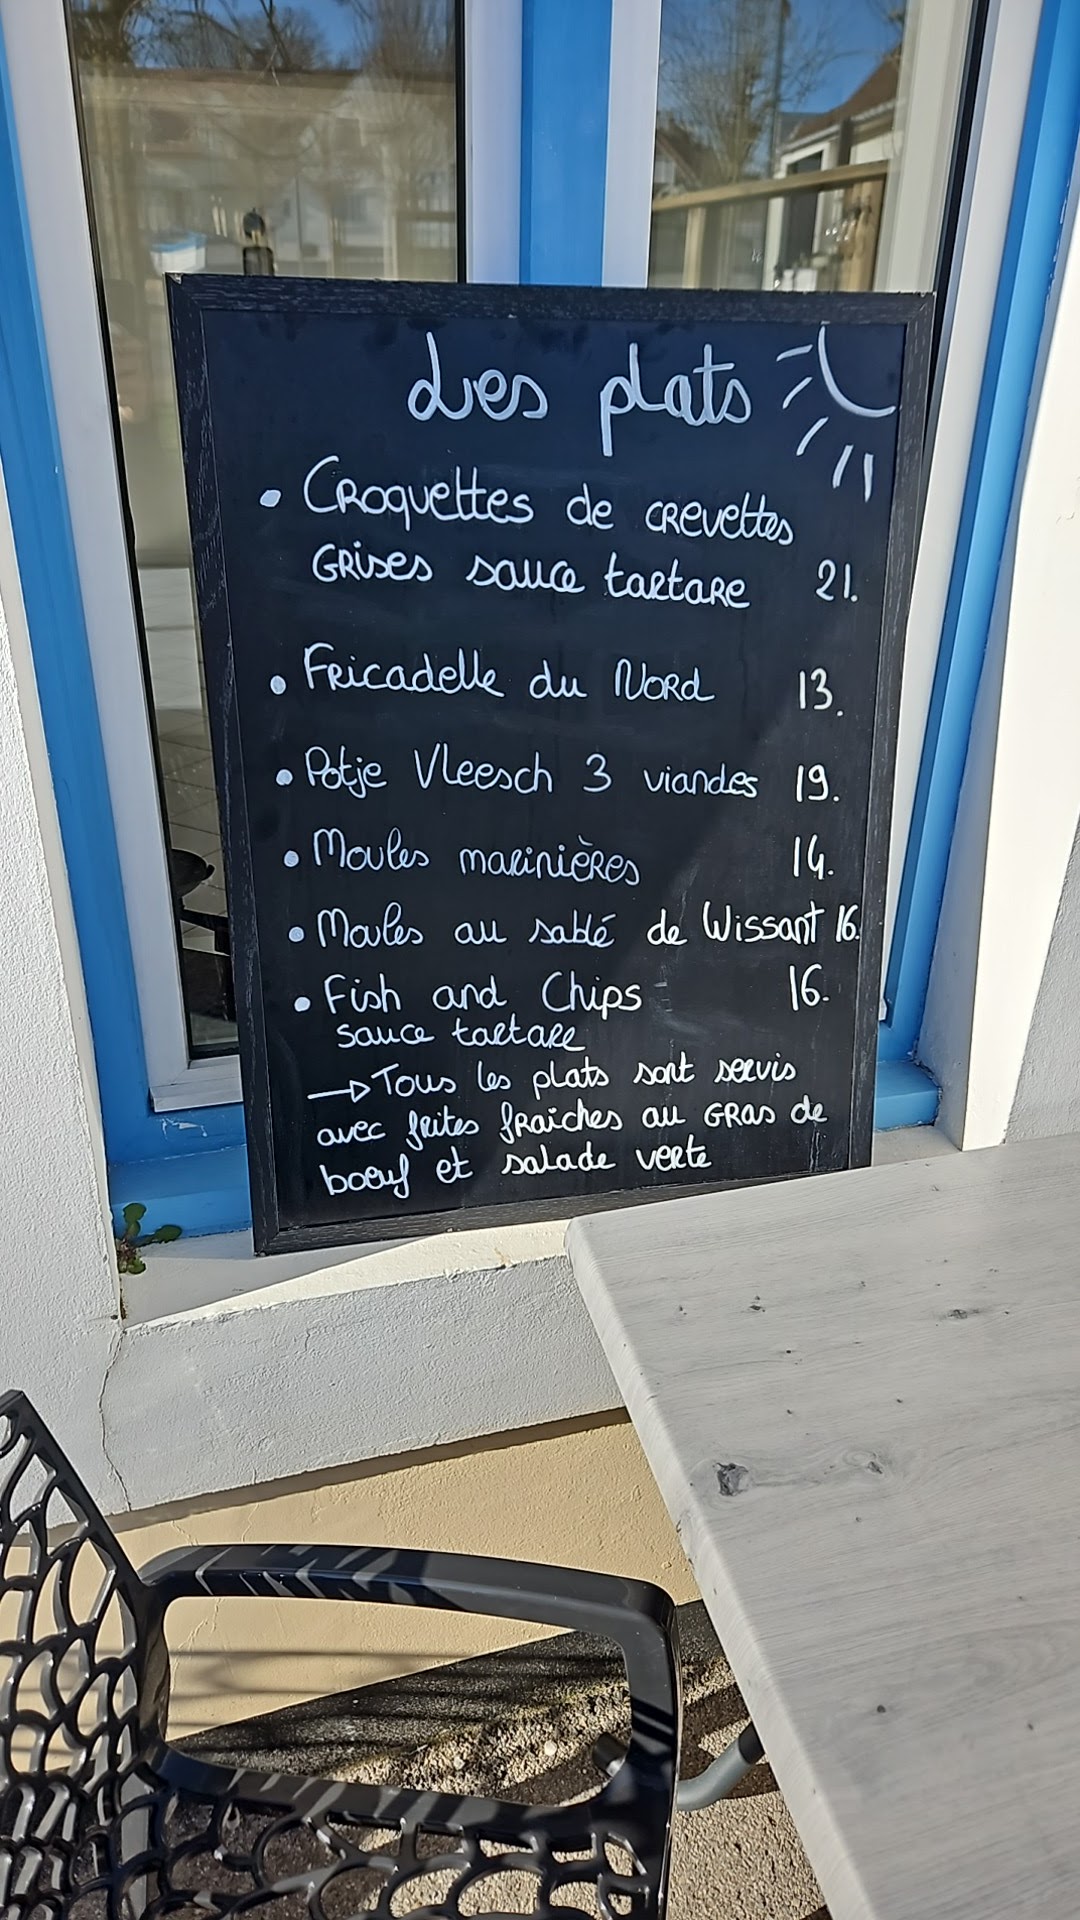 Les plats
• Croquettes de crevettes
grises sauce tartare 21.
• Fricadelle du Nord 13.
• Potje Vleesch 3 viandes 19.
• Moules marinières 14.
• Moules au sablé de Wissant 16.
• Fish and Chips 16.
sauce tartare
→ Tous les plats sont servis
avec frites fraîches au gras de
boeuf et salade verte